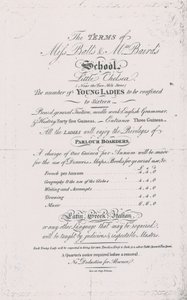 The TERMS of
Miss Balls & Mrs Baird's
School,
Little Chelsea,
(Near the Two Mile Stone)
The number of YOUNG LADIES to be confined
to Sixteen
Board, general Tuition, needle work, English Grammar,
& History, Forty five Guineas, Entrance Three Guineas.
All the LADIES will enjoy the Privileges of
PARLOUR BOARDERS.
A charge of One Guinea per Annum will be made
for the use of Drawers, Maps, Books for general use, &c.
French per Annum
Geography & the use of the Globes
Writing and Accompts
Drawing
Music
Latin, Greek, Italian,
or any other Language that may be required,
will be taught by judicious & respectable Masters.
A Quarter's notice required before a removal.
No Deduction for Absence.